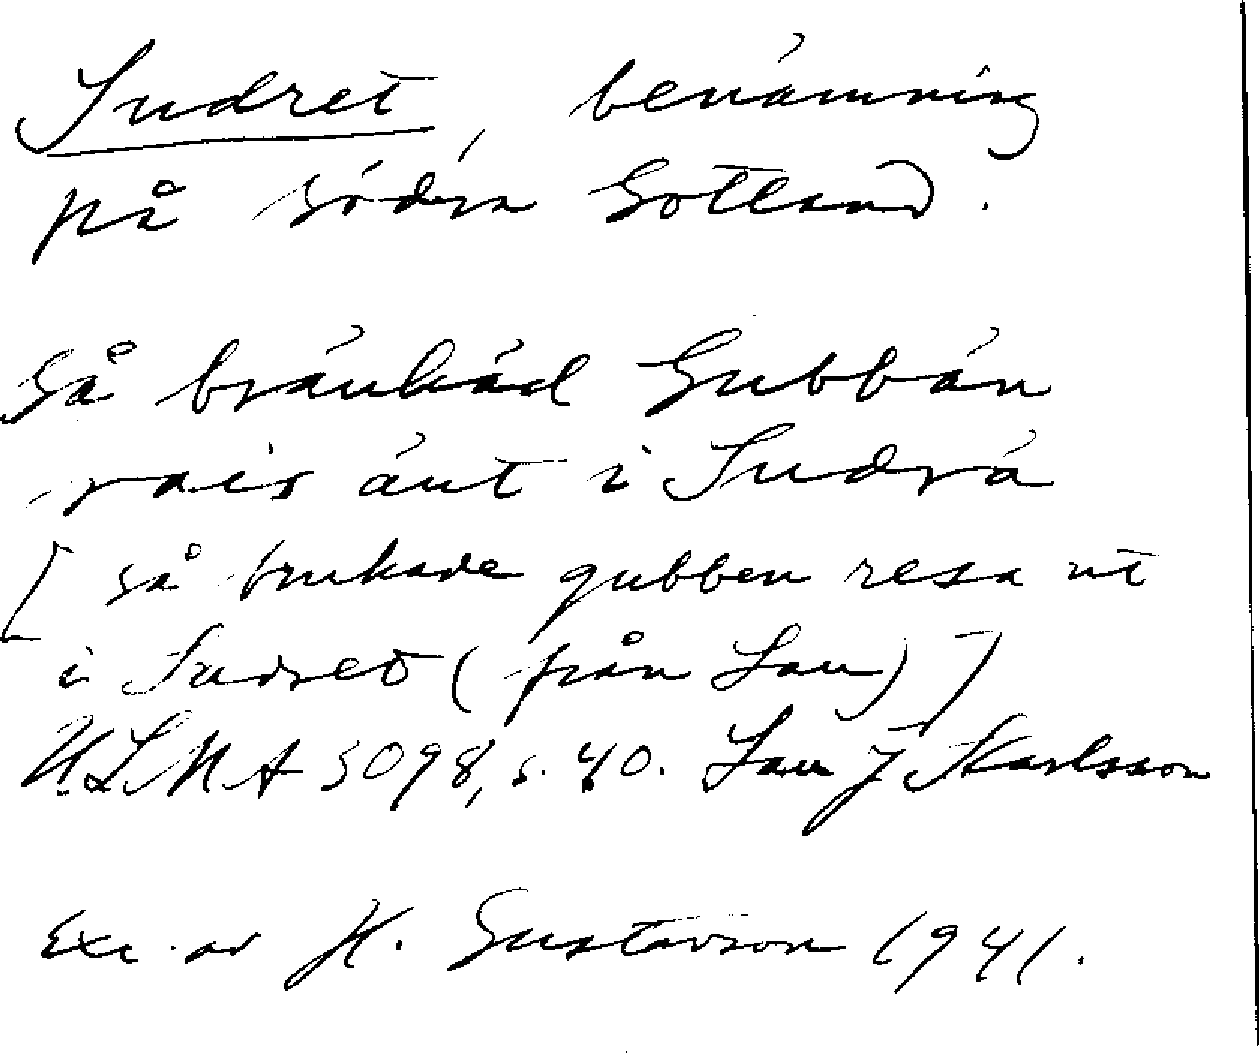 Sudret, benämning
på södra Gotland.
Så bräukäd Gubbän
rais äut i Sudrä
[ så brukade gubben resa ut
i Sudret (från Lau) ]
ULMA 5098, s. 40. Lau J Karlsson
Exc. av H. Gustavson 1941.